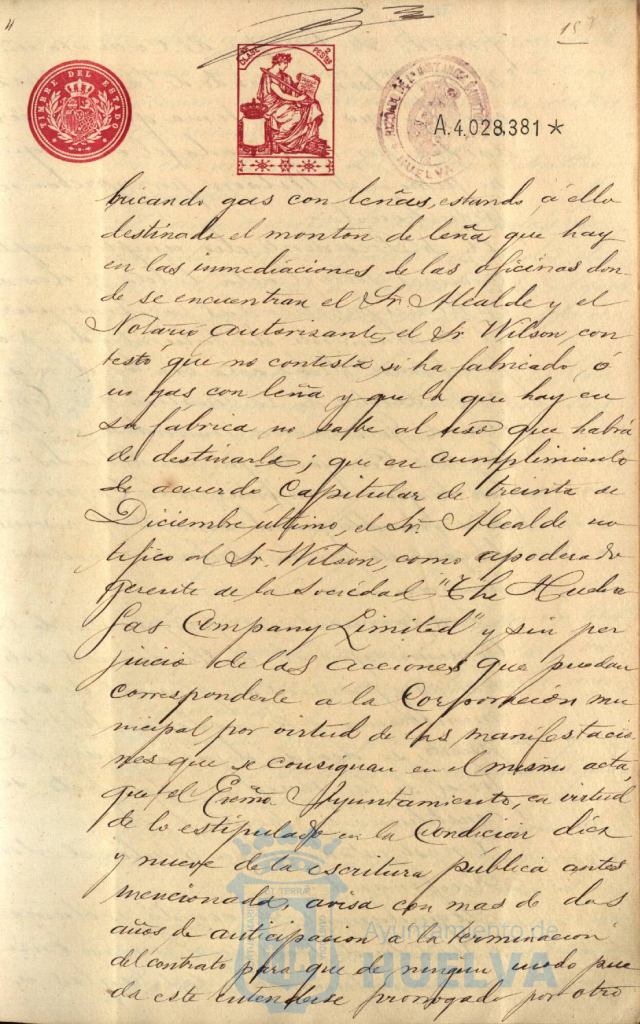 15
TIMBRE DEL ESTADO
CLASE
2 PESETAS
HUELVA
A.4,028,381 *
bricando gas con leñas, estando á ello
destinado el monton de leña que hay
en las inmediaciones de las oficinas don
de se encuentran el Sr. Alcalde y el
Notario autorizante, el Sr Wilson, con
testó que no contesta si ha fabricado ó
no gas con leña y que la que hay en
su fábrica no sabe al uso que habrá
de destinarla; que en cumplimiento
de acuerdo Capitular de treinta de
Diciembre último, el Sr. Alcalde no
tificó al Sr. Wilson, como apoderado
gerente de la Sociedad "The Huelva
Gas Company Limited" y sin per
juicio de las acciones que puedan
corresponderle á la Corporación mu
nicipal por virtud de las manifestacio
nes que se consignan en el mismo acta,
que el Excmo. Ayuntamiento, en virtud
de lo estipulado en la Condición diez
y nueve de la escritura pública antes
mencionada, avisa con mas de dos
años de anticipacion a la terminacion
del contrato para que de ningun modo pue
da este entenderse prorrogado por otro
Ayuntamiento de
HUELVA